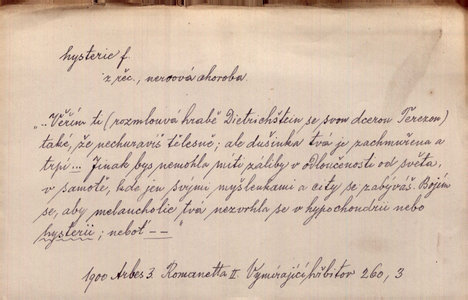 hysteric f.
z řeč., nervová choroba.
„..Věřím ti (rozmlouvá hrabě Dietrichštein se svou dcerou Terezou)
také, že nechuravíš tělesně; ale dušinka tvá je zachmuřena a
trpí ... Jinak bys nemohla míti záliby v odloučenosti od světa,
v samotě, kde jen svými myšlenkami a city se zabýváš. Bojím
se, aby melancholie tvá nezvrhla se v hypochondrii nebo
hysterii; neboť — — "
1900 Arbes J. Romanetta II. Vymírající hřbitov 260, 3